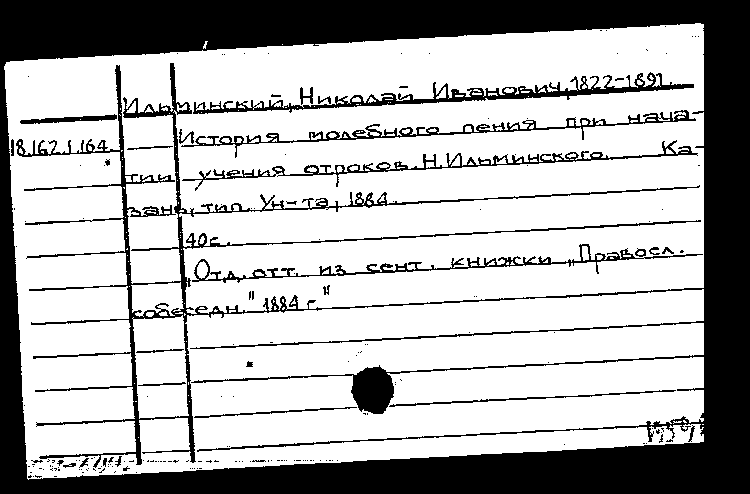 Ильминский, Николай Иванович, 1822-1891.
18.162.1.164. История молебного пения при нача-
тии учения отроков. Н. Ильминского. Ка-
зань, тип. Ун-та, 1884.
40 с.
„Отд. отт. из сент. книжки „Правосл.
собеседн." 1884 г."